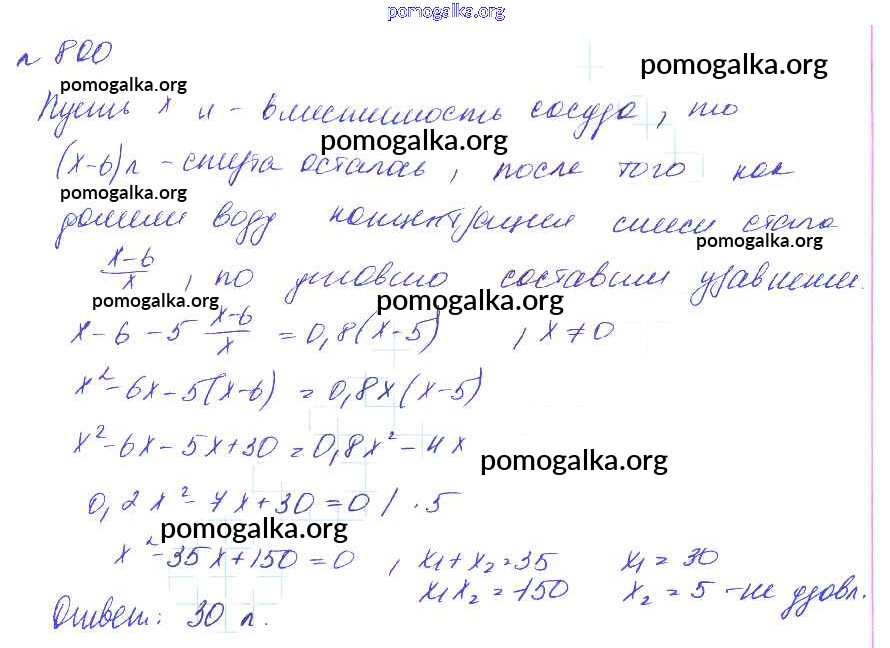 pomogalka.org
№ 800
pomogalka.org
pomogalka.org
Пусть x л - вместимость сосуда, то
pomogalka.org
(x-6) л - спирта осталось, после того как
pomogalka.org
долили воду концентрация смеси стала
pomogalka.org
x-6/x, по условию составим уравнение.
pomogalka.org
pomogalka.org
x-6-5 x-6/x = 0,8(x-5) , x≠0
x²-6x-5(x-6) = 0,8x(x-5)
x²-6x-5x+30=0,8x²-4x
pomogalka.org
0,2x²-7x+30=0 / ·5
pomogalka.org
x²-35x+150=0 , x₁+x₂=35 x₁=30
x₁x₂=150 x₂=5 - не удовл.
Ответ: 30 л.